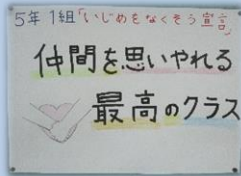 5年1組「いじめをなくそう宣言」
仲間を思いやれる
最高のクラス